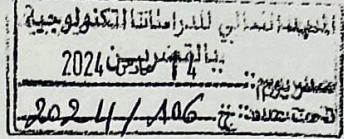 المعهد العالي للدراسات التكنولوجية
بالقصرين
14 مارس 2024
يوم:
تحت عدد: 2024/106